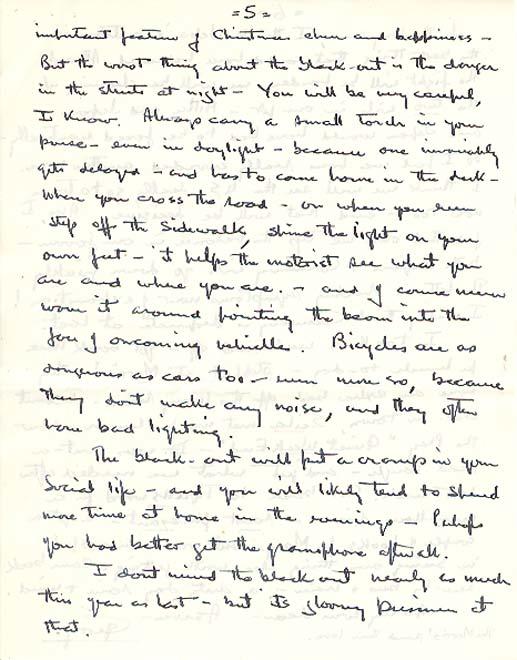 = 5 =
important feature of Christmas cheer and happiness –
But the worst thing about the black-out is the danger
in the streets at night – You will be very careful,
I know. Always carry a small torch in your
purse – even in daylight – because one invariably
gets delayed – and has to come home in the dark –
When you cross the road – or when you even
step off the sidewalk, shine the light on your
own feet – it helps the motorist see what you
are and where you are. – and of course never
wave it around pointing the beam into the
face of oncoming vehicles. Bicycles are as
dangerous as cars too – even more so, because
they don't make any noise, and they often
have bad lighting.
The black-out will put a cramp in your
social life – and you will likely tend to spend
more time at home in the evenings – Perhaps
you had better get the gramophone after all.
I don't mind the black out nearly as much
this year as last – but its gloomy at
that.